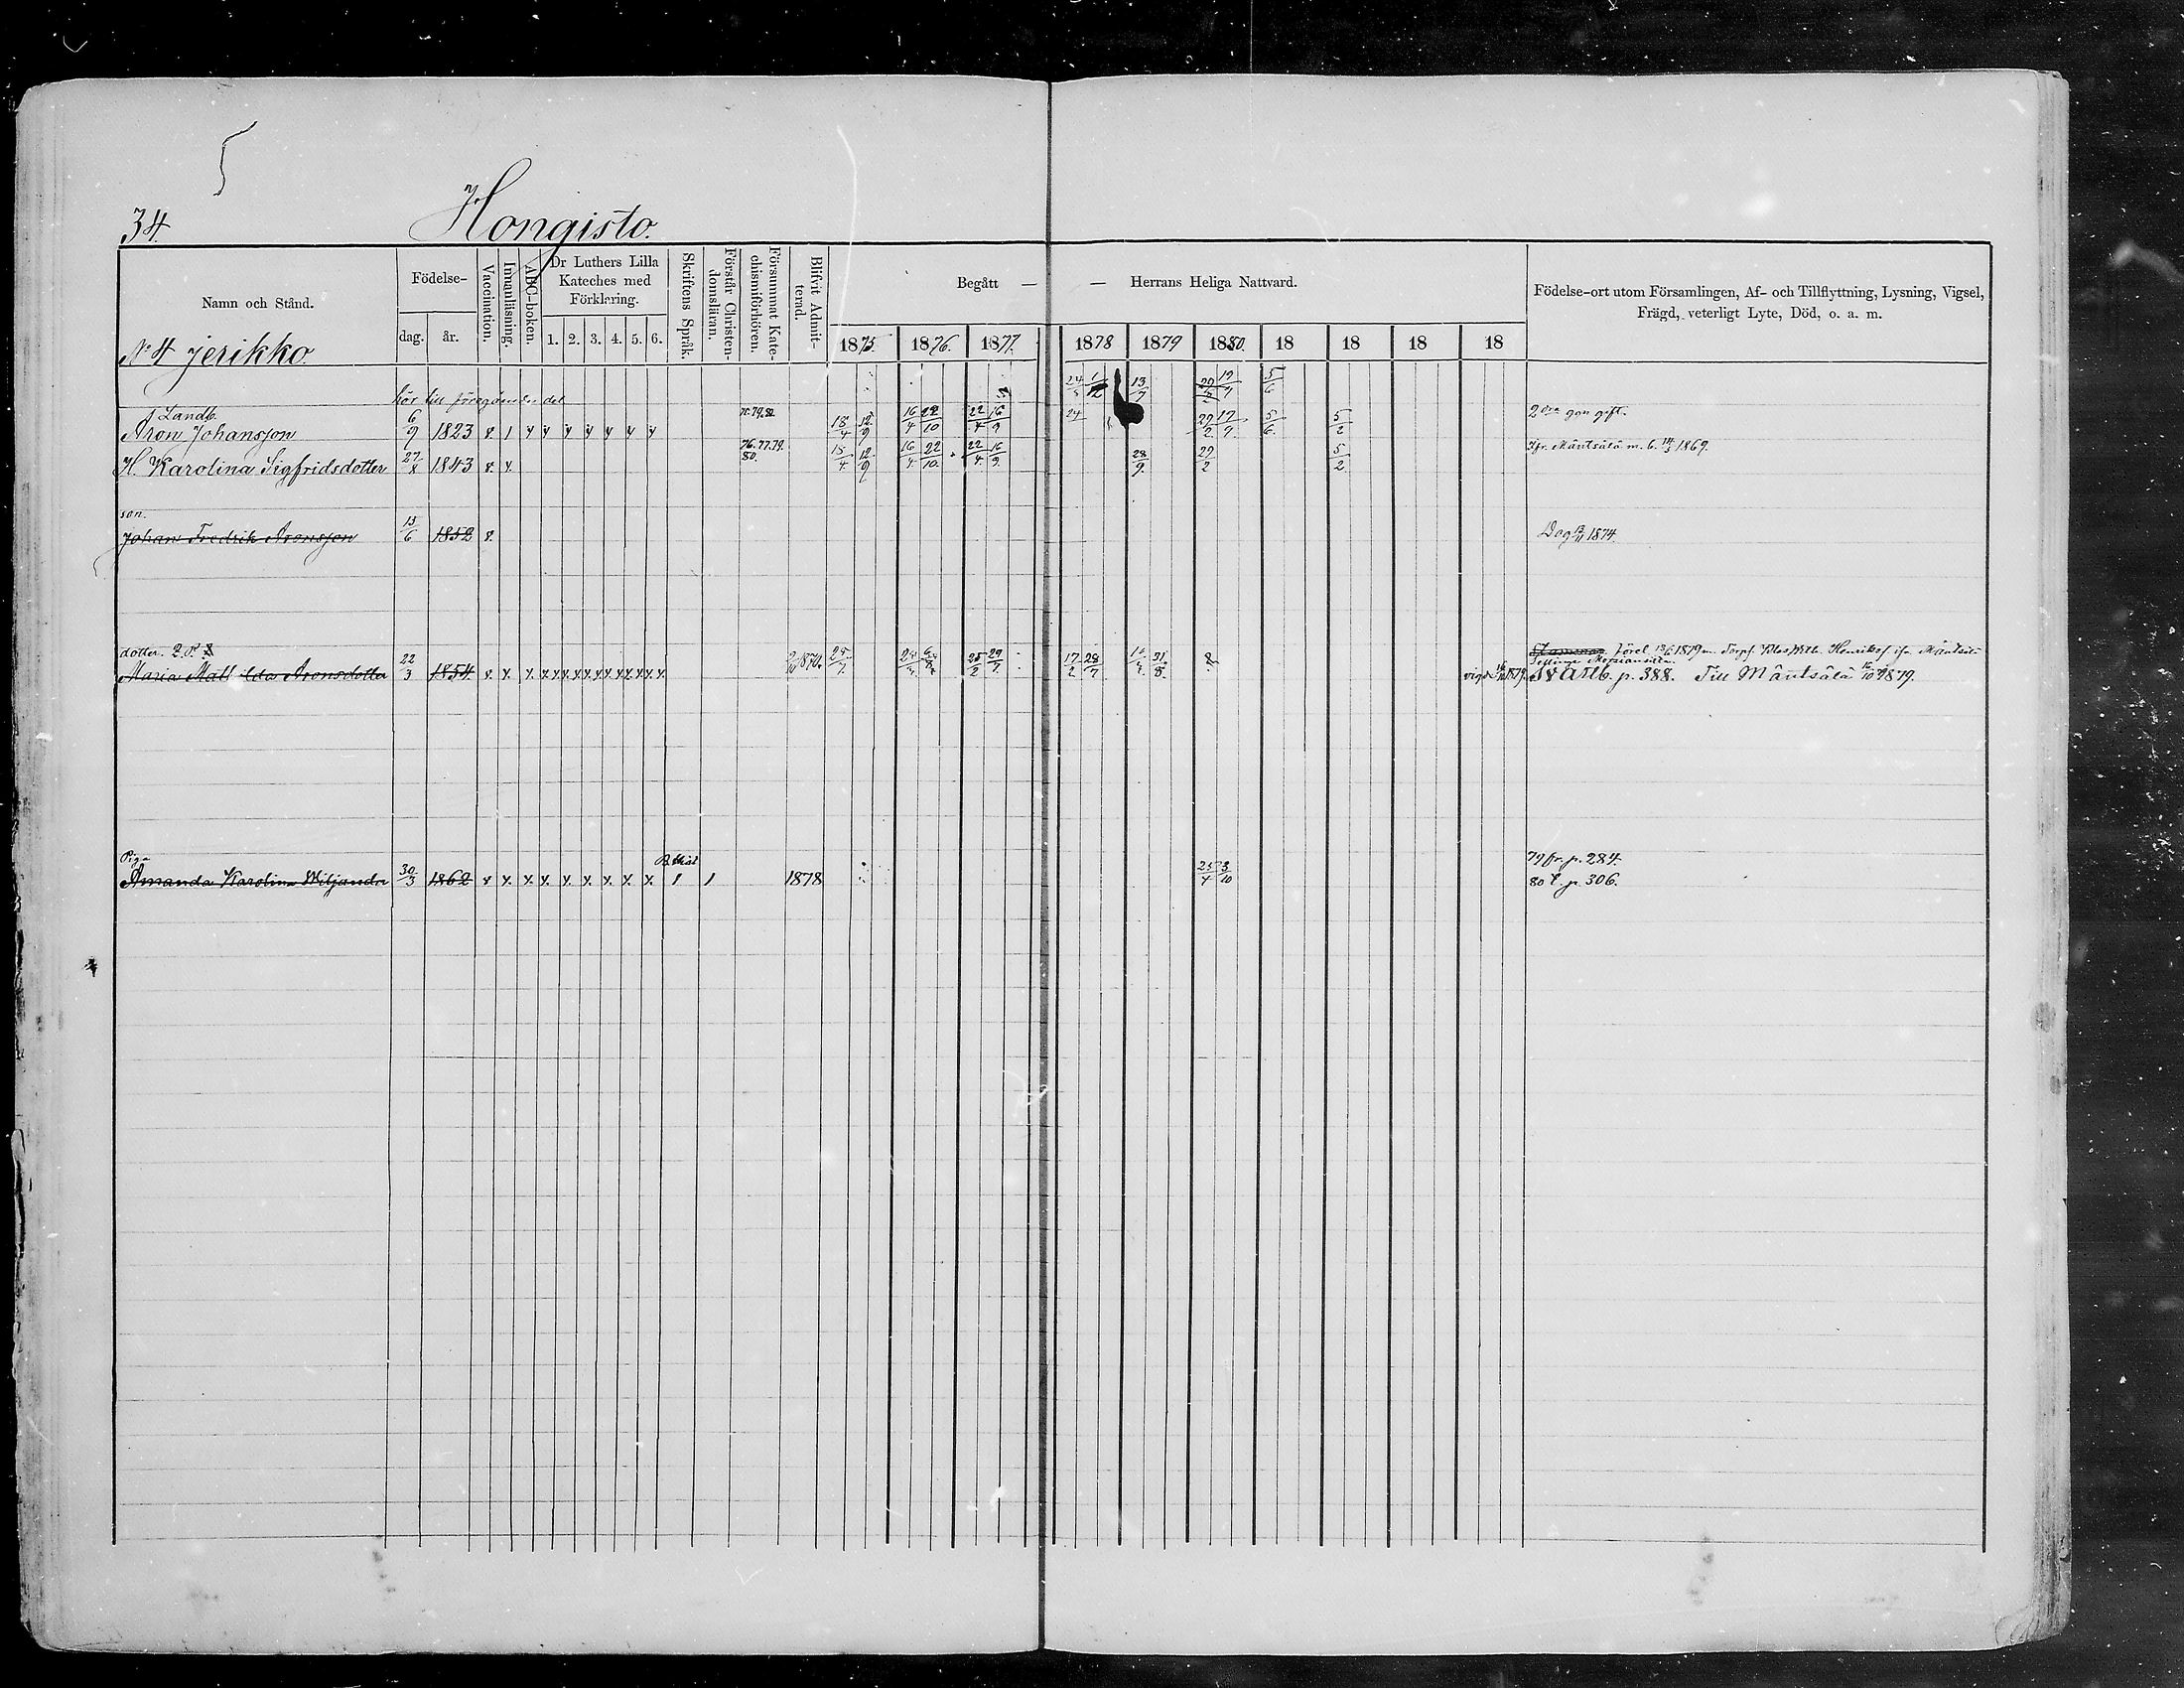 5
34.
Hongisto.
Namn och Stånd.
Födelse-
dag.
år.
Vaccination.
Innanläsning.
ABC-boken.
Dr Luthers Lilla
Kateches med
Förklaring.
1. 2. 3. 4. 5. 6.
Skriftens Språk.
Förstår Christen-
domsläran.
Försummat Kate-
chismiförhören.
Blifvit Admit-
terad.
Begått — — Herrans Heliga Nattvard.
1875. 1876. 1877. 1878 1879 1880. 18 18 18 18
Födelse-ort utom Församlingen, Af- och Tillflyttning, Lysning, Vigsel,
Frägd, veterligt Lyte, Död, o. a. m.
No 4 Jerikko.
24/5 1/12 13/7 29/2 17/7 5/6
hör till föregående del
Landb.
Aron Johansson 6/9 1823 v. 18/4 12/9 16/4 22/10 22/4 16/9 24 29/2 17/7. 5/6. 5/2 2dra gån gift.
76.77.79.
80.
H. Karolina Sigfridsdotter 27/8 1843 v. 15/4. 12/9 16/4 22/10. 22/4. 16/9. 28/9. 29/2 5/2. Ifr. Mäntsälä m. b. 14/3 1869.
son.
Johan Fredrik Aronsson 15/6 1852 v. Dog 1874.
dotter.
Maria Mathilda Aronsdotter 22/3 1854 v. 1870. 25/2 29/7. 17/2 28/7 vigd 1879. p. 388. Till Mäntsälä 1879.
Piga
Amanda Karolina Wiljander 30/3 1862 v 1878 25/4 3/10
79 fr. p. 284.
80 t. p. 306.